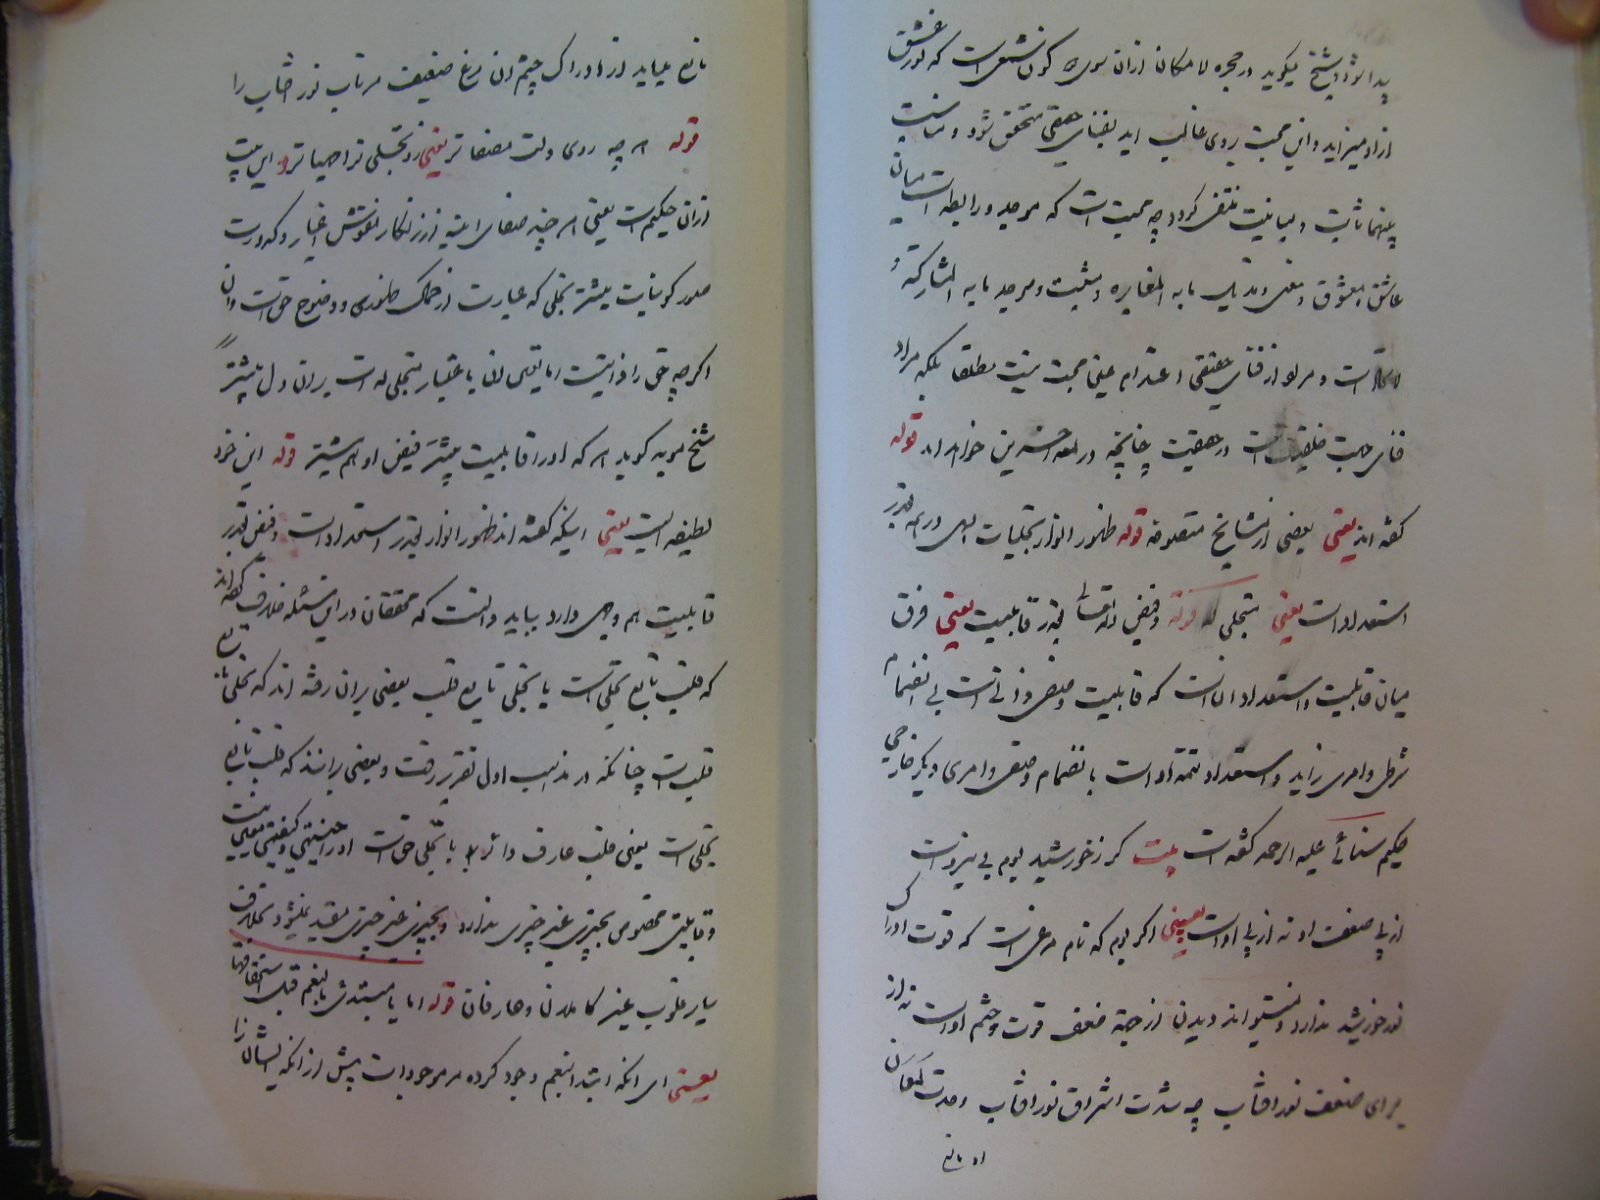 شیخ میگوید در حجره لامکان ازان سوی کون عشقست که نور عشق
ازاد میزاید و این محبت روی غالب اید بفنای حقیقی متحقق شود و مناسبت
بینهما ثابت و مباینت منتفی کردد چه محبت است که موجد و رابطه است میان
عاشق و معشوق و مابه المغایره و مثبت و موجد مابه المشارکة و
است و مراد از فنای حقیقی انعدام عین محبت نیست مطلقا بلکه مراد
فنای جهت خلقیت است در حقیقت چنانچه در لمعه خواهد امد قوله
کفته اند یعنی بعضی از مشایخ متصوفه قوله ظهور انوار تجلیات الهی در همه بقدر
استعداد است یعنی متجلی له قوله و فیض بقدر قابلیت یعنی فرق
میان قابلیت و استعداد انست که قابلیت وصفی ذاتی است بی انضمام
شرطی و امری زاید و استعداد تتمه او است بانضمام وصفی و امری دیکر خارجی
حکیم سنائی علیه الرحمه کفته است بیت کر ز خورشید بوم بی نیروست
از پی ضعف او نه از پی اوست یعنی اکر بوم که نام مرغی است که قوت ادراک
نور خورشید ندارد و نمیتواند دیدن از جهة ضعف قوت و چشم اوست نه از
برای ضعف نور افتاب چه شدت اشراق نور افتاب وحدت لمعان
او مانع
مانع میاید از ادراک چشم ان مرغ ضعیف مر تاب نور افتاب را
قوله هر چه روی دلت مصفا تر یعنی زو تجلی ترا مهیا تر و این بیت
ازان حکیم است یعنی هر چند صفای اینه از زنکار نقوش اغیار و کدورت
صور کونیات بیشتر تجلی که عبارت از ظهوری و وضوح حق است وان
اکرچه حق را ذاتیست اما یعنی ان باعتبار متجلی له است بران دل بیشتر
شیخ کوید هر که او را قابلیت بیشتر فیض او هم بیشتر قوله این خود
لطیفه ایست یعنی اینکه کفته اند ظهور انوار بقدر استعداد است و فیض بقدر
قابلیت هم وجهی دارد بباید دانست که محققان در این مسئله خلاف کرده اند
که قلب تابع تجلی است یا تجلی تابع قلب بعضی بران رفته اند که تجلی تابع
قلبست چنانکه در مذهب اول تقریر رفت و بعضی برانند که قلب تابع
تجلی است یعنی قلب عارف دائر با تجلی حق است او را هیئتی و کیفیتی معین نیست
و قابلیتی مخصوص بچیزی غیر چیزی ندارد و بچیزی غیر چیزی مقید نمیشود بخلاف
سایر قلوب غیر کاملان و عارفان قوله اما یا مبتدئ بالنعم قبل استحقاقها
یعنی ای انکه ابتدا بنعم وجود کرده مر موجودات پیش از انکه ایشان را